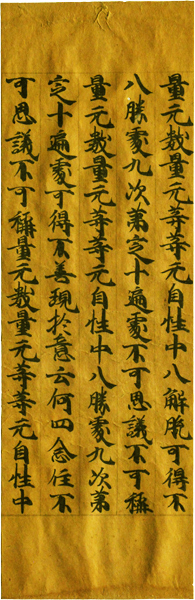 量无數量无等等无自性中八解脫可得不
八勝處九次第定十遍處不可思議不可稱
量无數量无等等无自性中八勝處九次第
定十遍處可得不善現於意云何四念住不
可思議不可稱量无數量无等等无自性中